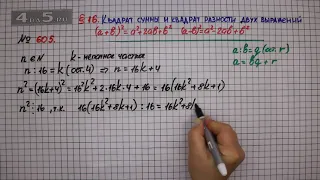 § 16. Квадрат суммы и квадрат разности двух выражений
(a+b)²=a²+2ab+b² (a-b)²=a²-2ab+b²
№ 605.
n ∈ N k - неполное частное
n : 16 = k (ост. 4) ⇒ n = 16k+4
a : b = q (ост. r)
a = bq + r
n² = (16k+4)² = 16²k² + 2·16k·4 + 16 = 16(16k²+8k+1)
n² : 16, т.к. 16(16k²+8k+1) : 16 = 16k²+8k